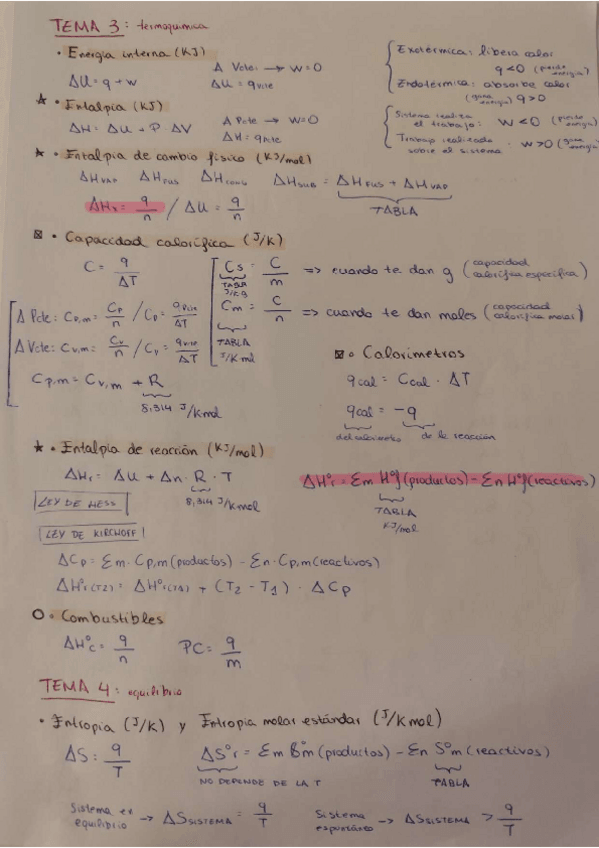 TEMA 3: termoquímica
• Energía interna (KJ)
ΔU = q + w
A Vcte: → W=0
ΔU = qvcte
Exotérmica: libera calor
q<0 (pierde energía)
Endotérmica: absorbe calor
(gana energía) q>0
★ • Entalpía (KJ)
ΔH = ΔU + P · ΔV
A Pcte → W=0
ΔH = qpcte
Sistema realiza el trabajo: W<0 (pierde energía)
Trabajo realizado sobre el sistema · W>0 (gana energía)
★ • Entalpía de cambio físico (KJ/mol)
ΔHVAP ΔHFUS ΔHCONG ΔHSUB = ΔHFUS + ΔHVAP
TABLA
ΔHx = q/n / ΔU = q/n
• Capacidad calorífica (J/K)
C = q/ΔT
Cs = C/m => cuando te dan g (capacidad calorífica específica)
TABLA
J/Kg
Cm = C/n => cuando te dan moles (capacidad calorífica molar)
TABLA
J/K mol
Δ Pcte: Cp,m = Cp/n / Cp = qpcte/ΔT
Δ Vcte: Cv,m = Cv/n / Cv = qvcte/ΔT
Cp,m = Cv,m + R
8,314 J/Kmol
• Calorímetros
qcal = Ccal · ΔT
qcal = -q
del calorímetro de la reacción
★ • Entalpía de reacción (KJ/mol)
ΔHr = ΔU + Δn · R · T
8,314 J/Kmol
ΔH°r = Σm H°f (productos) - Σn H°f (reactivos)
TABLA
KJ/mol
LEY DE HESS
LEY DE KIRCHOFF
ΔCp = Σm · Cp,m (productos) - Σn · Cp,m (reactivos)
ΔH°r(T2) = ΔH°r(T1) + (T2 - T1) · ΔCp
• Combustibles
ΔH°c = q/n PC = q/m
TEMA 4: equilibrio
• Entropía (J/K) y Entropía molar estándar (J/K mol)
ΔS: q/T
ΔS°r = Σm S°m (productos) - Σn S°m (reactivos)
NO DEPENDE DE LA T
TABLA
Sistema en equilibrio → ΔSSISTEMA = q/T
Sistema espontáneo → ΔSSISTEMA > q/T